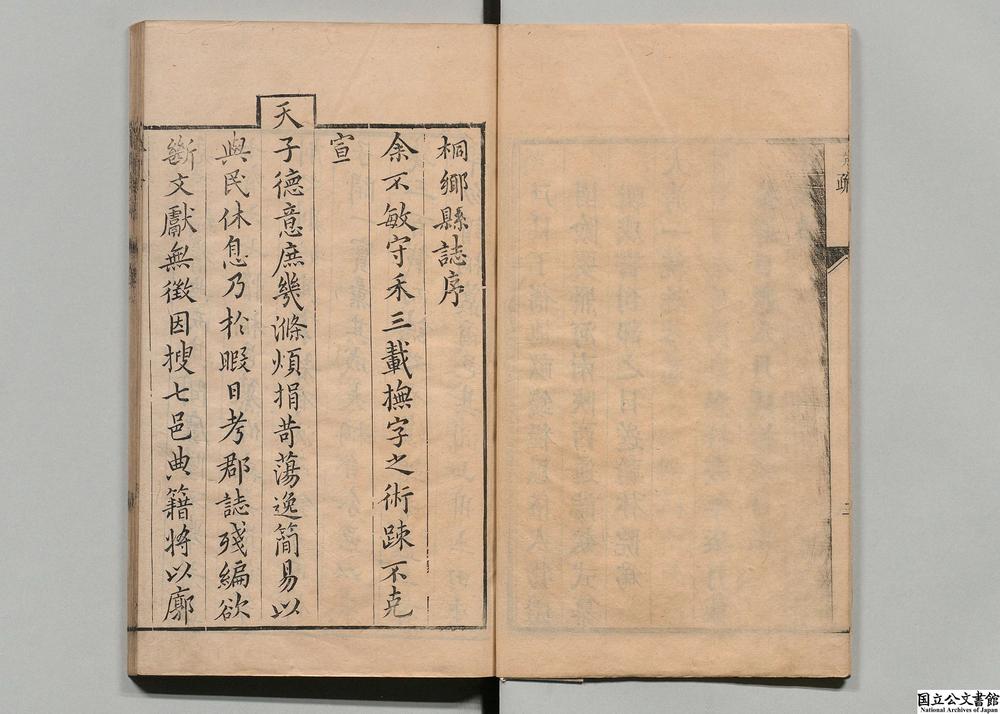 桐鄉縣誌序
余不敏守禾三載撫字之術踈不克
宣
天子德意庶幾滌煩捐苛蕩逸簡易以
與民休息乃於暇日考郡誌殘編欲
斷文獻無徵因搜七邑典籍將以廓
疏
国立公文書館
National Archives of Japan